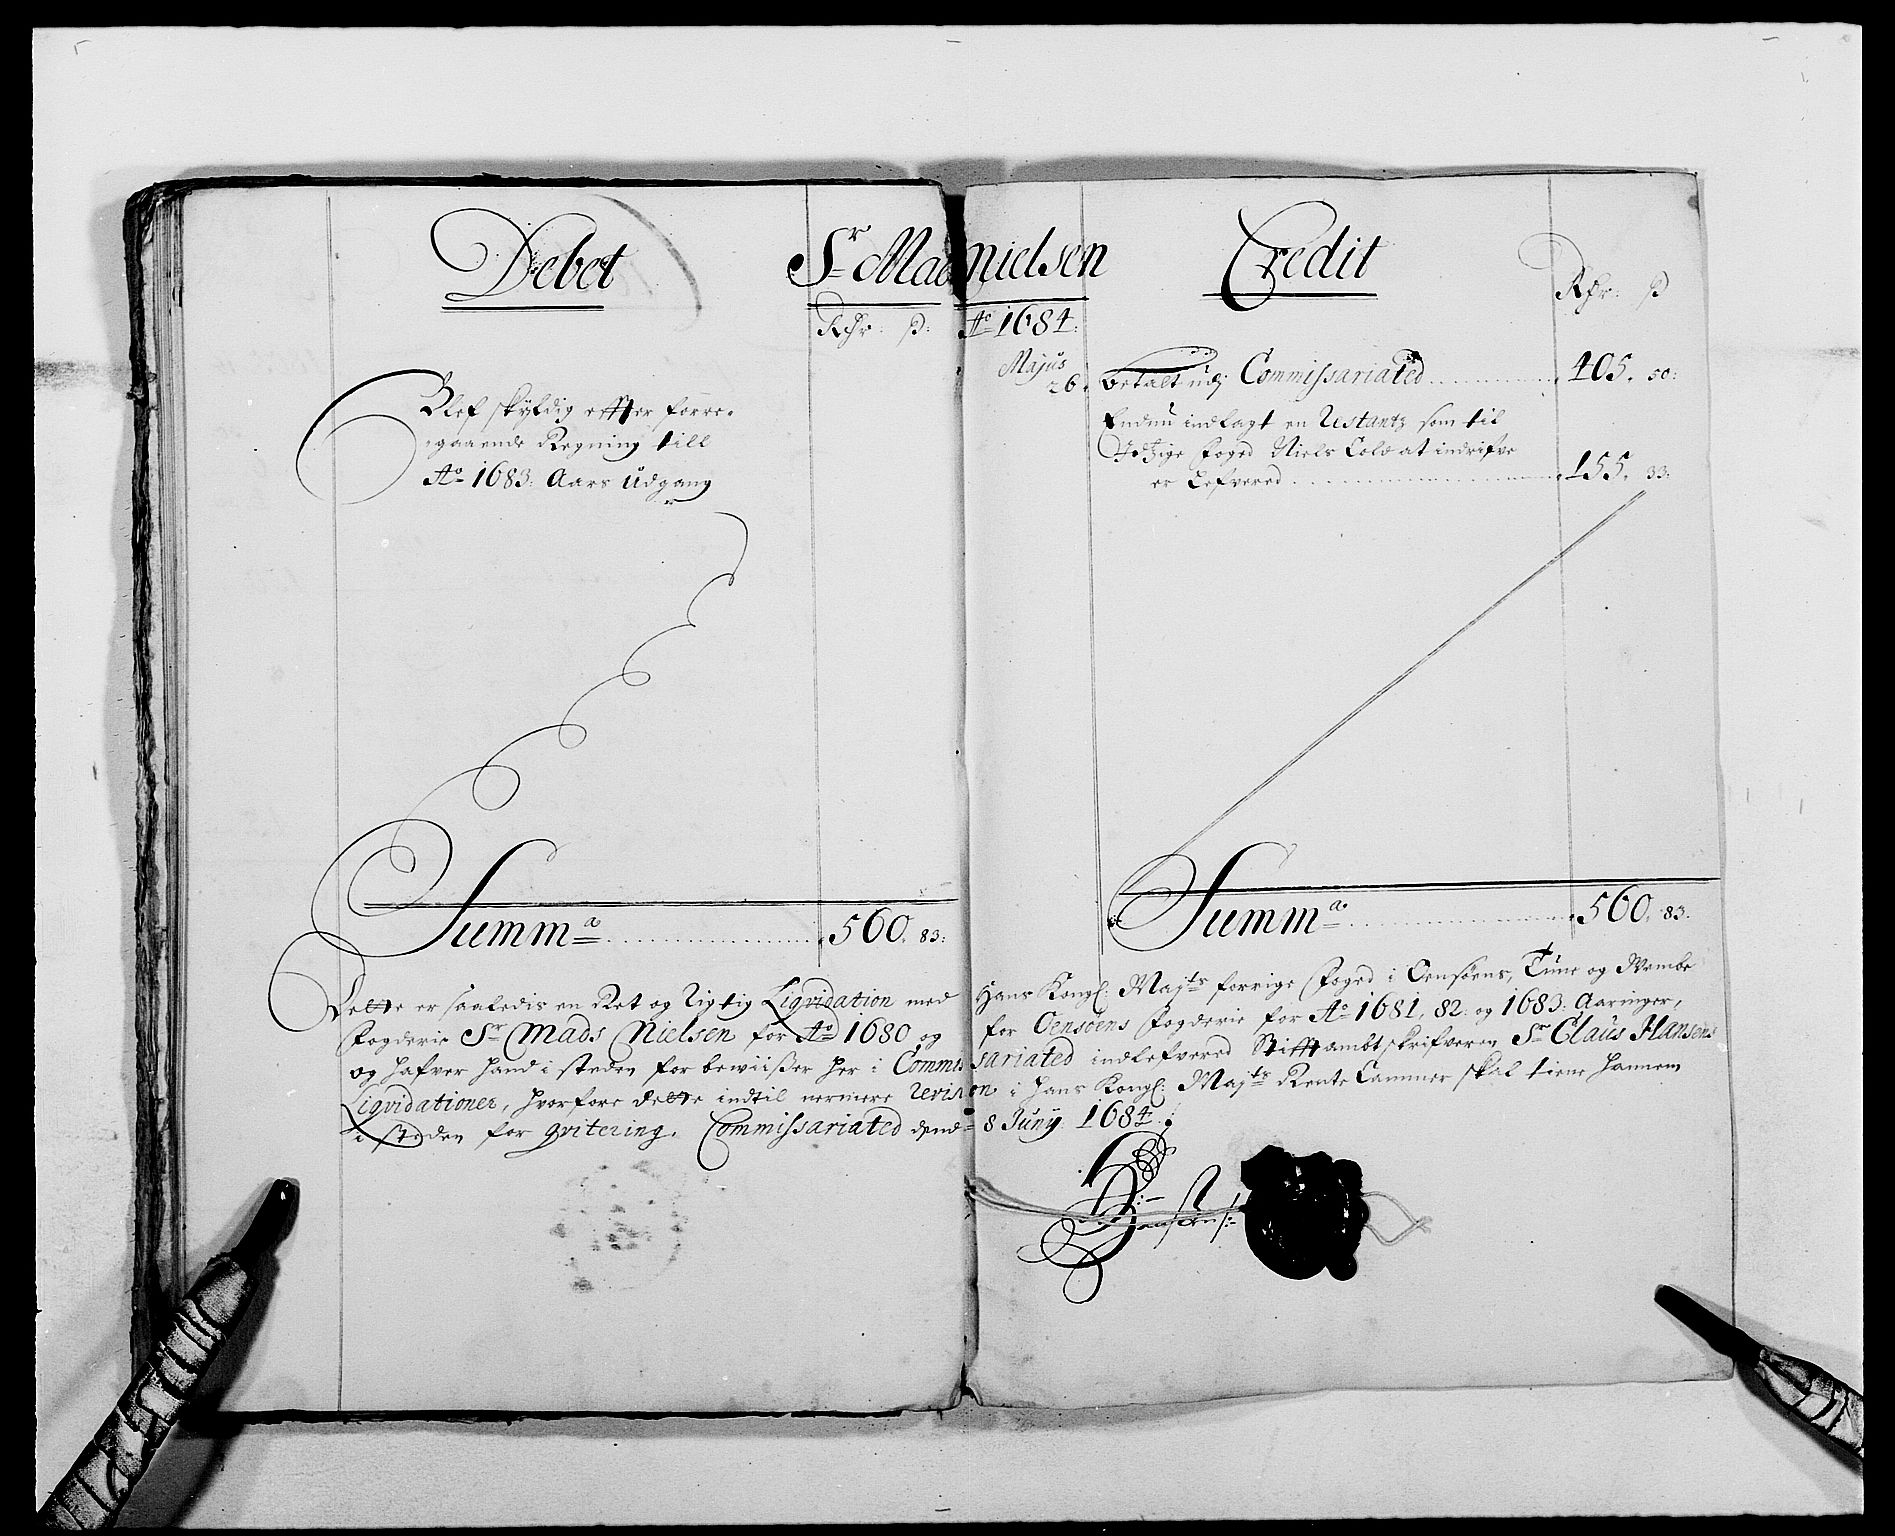 Debet
Sr Mads Nielsen
Credit
Rdr: ß:
Ao 1684.
Rdr: ß
Majus
26.
betalt udj Commissariated
405. 50:
Blef skyldig effter forre-
gaaende Regning till
Ao 1683: Aars Udgang
Endnu indlagt en Restantz som til
Itzige Foged Niels Cold at indrifve
er Lefvered
155. 33:
Summa 560. 83:
Summa 560. 83:
Dette er saaledis en Ret og Rigtig Liqvidation med Hans Kongl: Majts forrige Foged i Oensøens, Tune og Wembe
Fogderie Sr Mads Nielsen for Ao 1680 og for Oensøens Fogderie for Ao 1681, 82: og 1683: Aaringer,
og hafver hand i steden for bewiißer her i Commissariated indlefvered Stifftambtskrifveren Sr Claus Hansens
Liqvidationer, hvorfore dette indtil nermere Revision i Hans Kongl: Majts Rente Cammer skal tiene hannem
i steden for qvitering. Commissariated dend 8 Junij 1684.